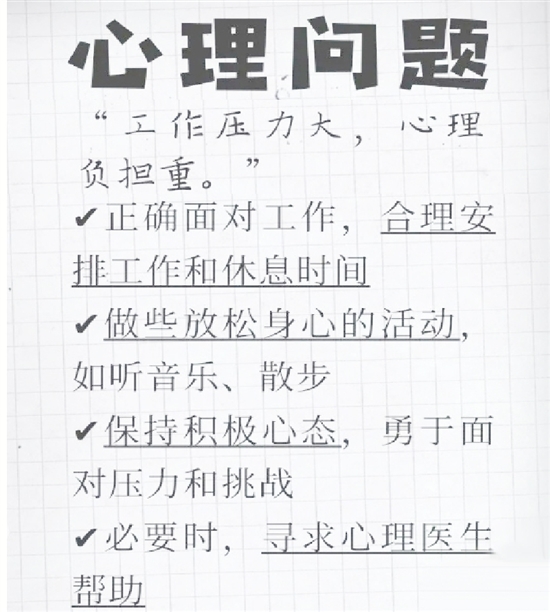 心理问题
“工作压力大，心理
负担重。”
✔正确面对工作，合理安
排工作和休息时间
✔做些放松身心的活动，
如听音乐、散步
✔保持积极心态，勇于面
对压力和挑战
✔必要时，寻求心理医生
帮助